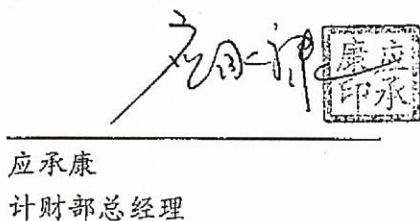 应承
康印
应承康
计财部总经理